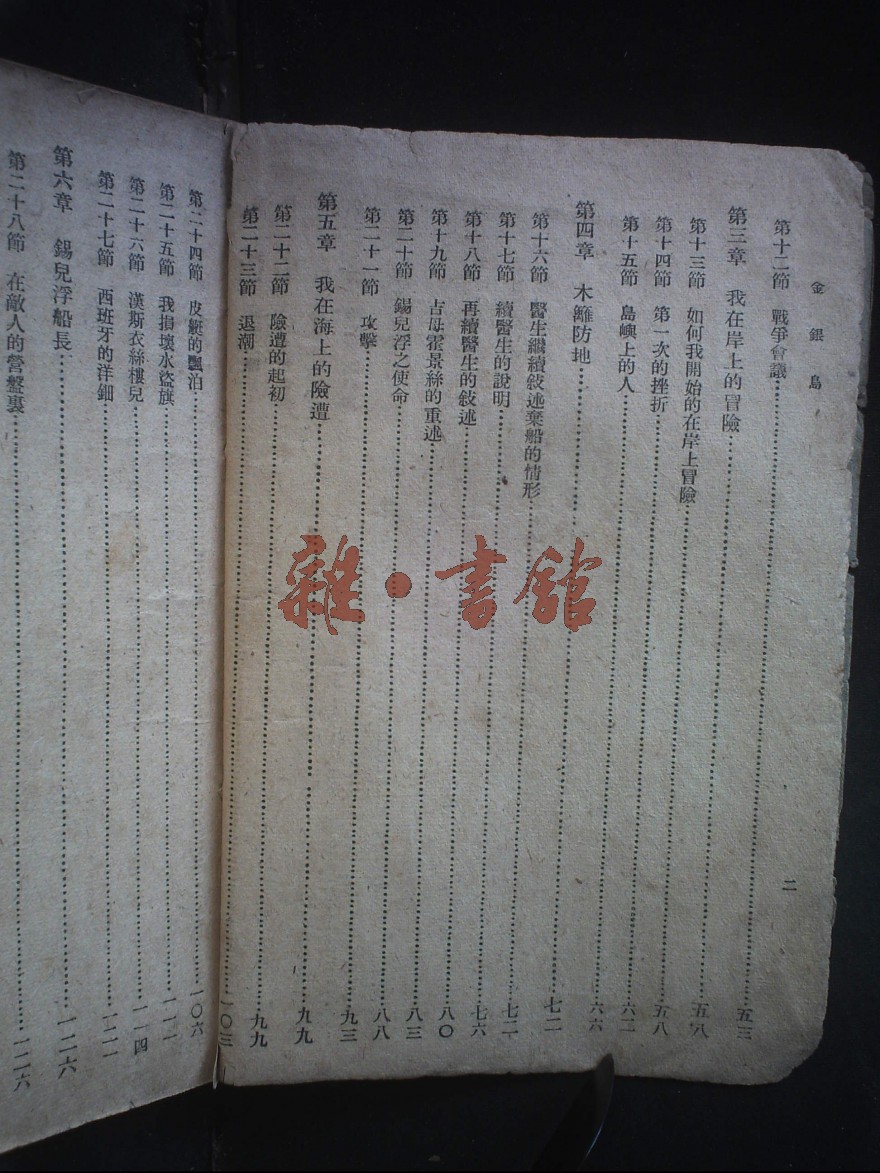 金銀島
二
第十二節 戰爭會議……五三
第三章 我在岸上的冒險……五八
第十三節 如何我開始的在岸上冒險……五八
第十四節 第一次的挫折……六二
第十五節 島嶼上的人……六六
第四章 木籬防地……七二
第十六節 醫生繼續敍述棄船的情形……七二
第十七節 續醫生的說明……七六
第十八節 再續醫生的敍述……八〇
第十九節 吉母霍景絲的重述……八三
第二十節 錫兒浮之使命……八八
第二十一節 攻擊……九三
第五章 我在海上的險遭……九九
第二十二節 險遭的起初……九九
第二十三節 退潮……一〇三
第二十四節 皮艇的飄泊……一〇六
第二十五節 我損壞水盜旗……一一一
第二十六節 漢斯衣絲樓兒……一一四
第二十七節 西班牙的洋鈿……一二一
第六章 錫兒浮船長……一二六
第二十八節 在敵人的營盤裏……一二六
雜·書館